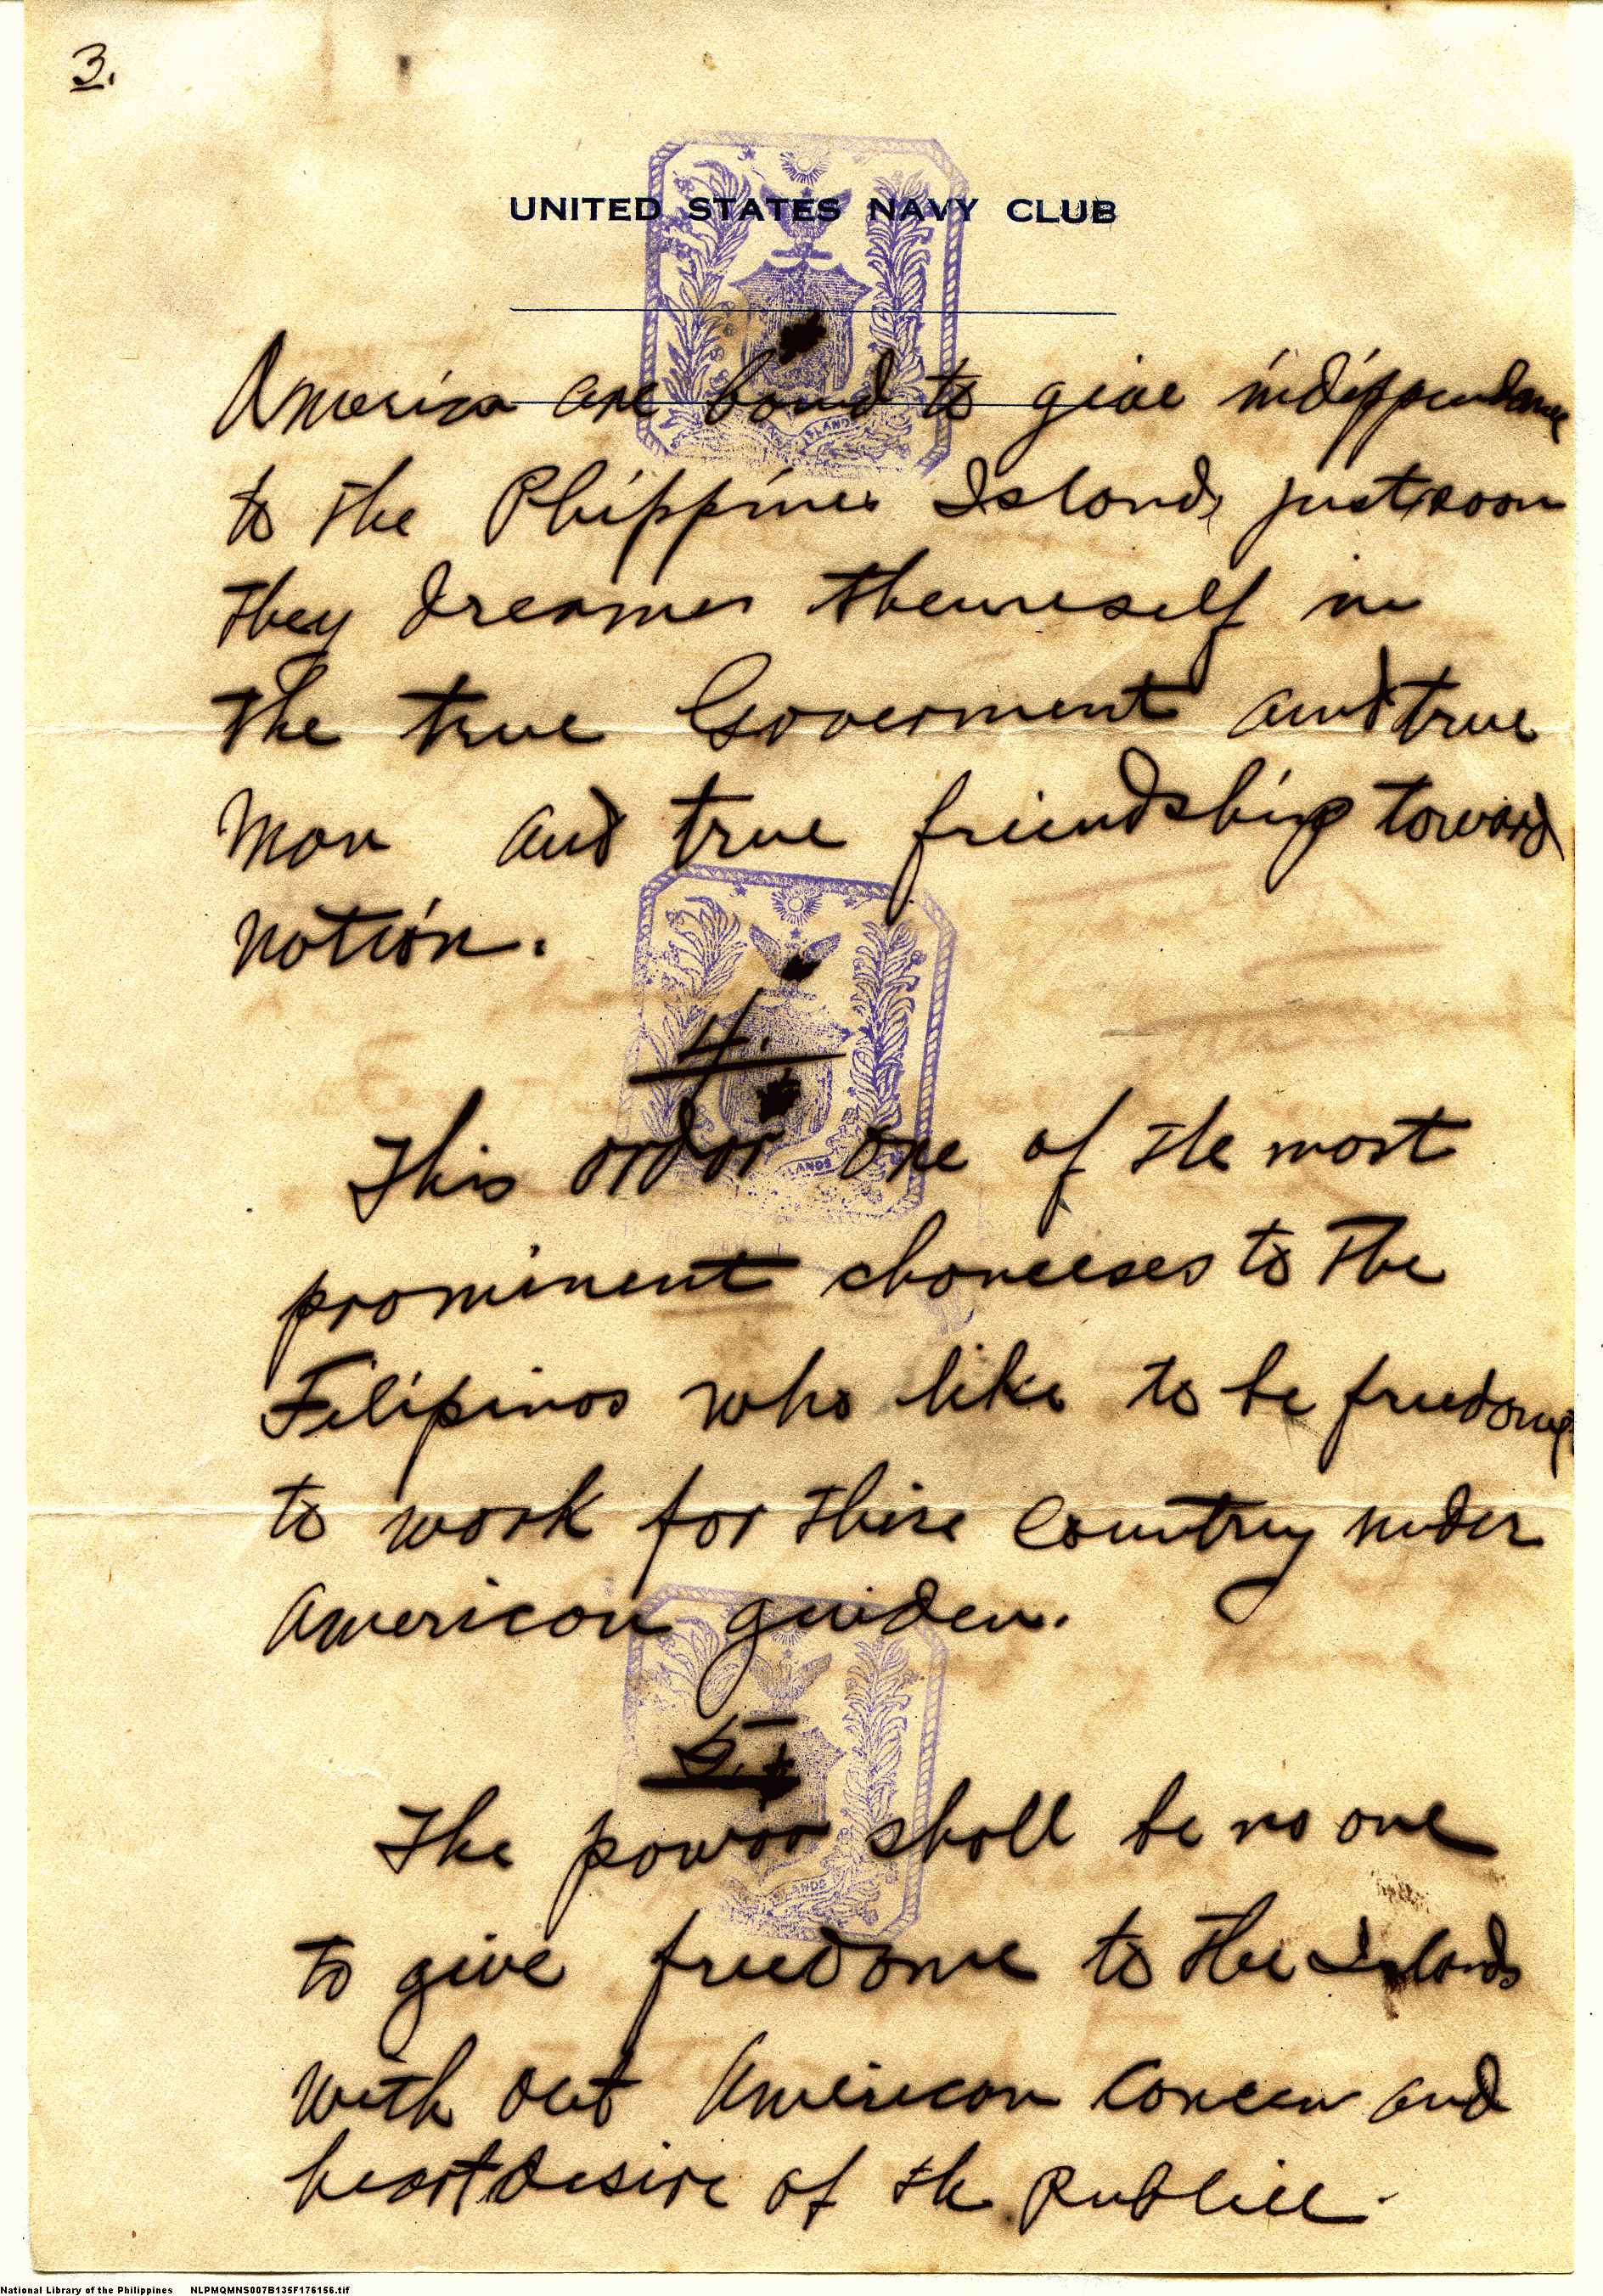 3.
UNITED STATES NAVY CLUB
America are bound to give indippendance
to the Phippines Islands just soon
they dreames themeself in
the true Goverment and true
man and true friendship toward
nation.
4.
This order one of the most
prominent chanceses to the
Filipinos who like to be freedome
to work for thire Country under
American guiden.
5.
The power shall be no one
to give freedome to the Islands
with out American Concen and
heart desire of the Publice.
ISLANDS
ISLANDS
ISLANDS
National Library of the Philippines NLPMQMNS007B135F176156.tif